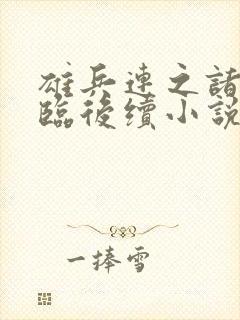 雄兵連之諸
臨後續小說
一捧雪